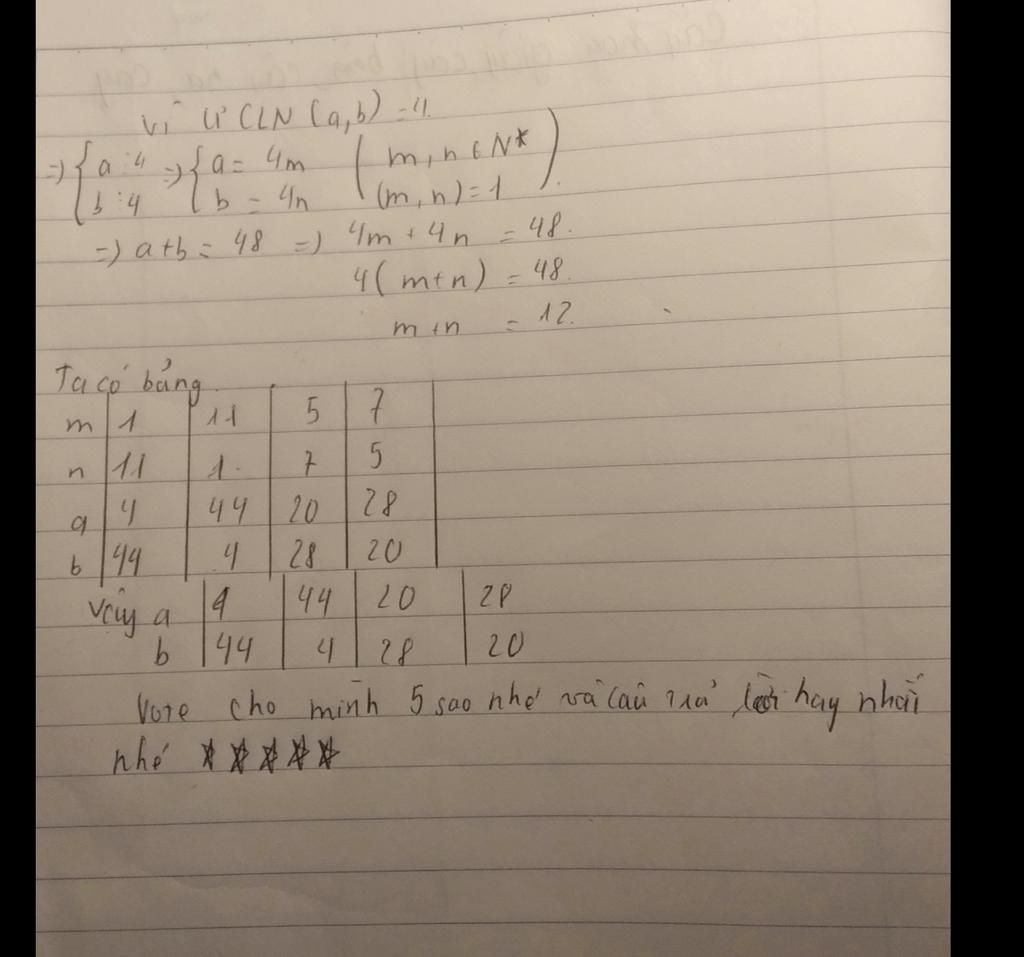 Vì ƯCLN (a,b) = 4.
=> { a ⋮ 4 => { a = 4m ( m, n ∈ N*
b ⋮ 4 b = 4n (m, n) = 1 ).
=> a+b = 48 => 4m + 4n = 48.
4( m+n) = 48.
m+n = 12.
Ta có bảng
m | 1 | 11 | 5 | 7
n | 11 | 1. | 7 | 5
a | 4 | 44 | 20 | 28
b | 44 | 4 | 28 | 20
Vậy a | 4 | 44 | 20 | 28
b | 44 | 4 | 28 | 20
Vote cho mình 5 sao nhé và câu trả lời hay nhất
nhé * * * * *